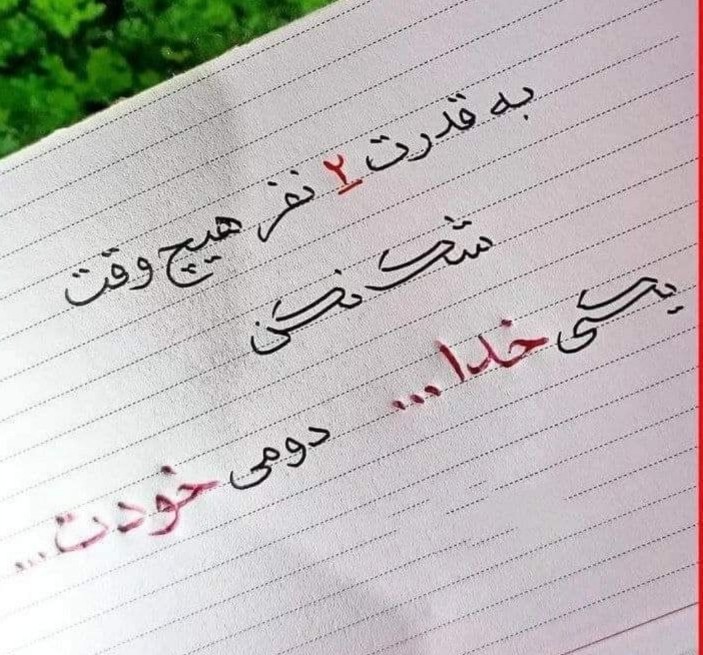 به قدرت ۲ نفر هیچ وقت
شک نکن
یکی خدا...
دومی خودت...